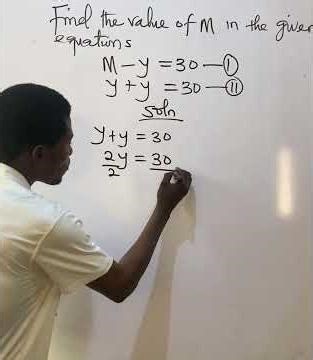 Find the value of M in the given
equations
M - y = 30 — I
y + y = 30 — II
Soln
y + y = 30
2y = 30
2